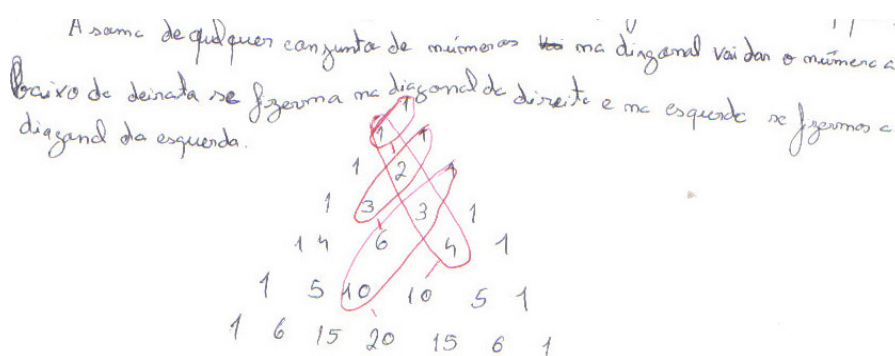 A soma de qualquer conjunto de números na diagonal vai dar o número a
baixo da deireta se fizerma na diagonal da direita e na esquerda se fizermos a
diagonal da esquerda.
1
1 1
1 2 1
1 3 3 1
1 4 6 4 1
1 5 10 10 5 1
1 6 15 20 15 6 1